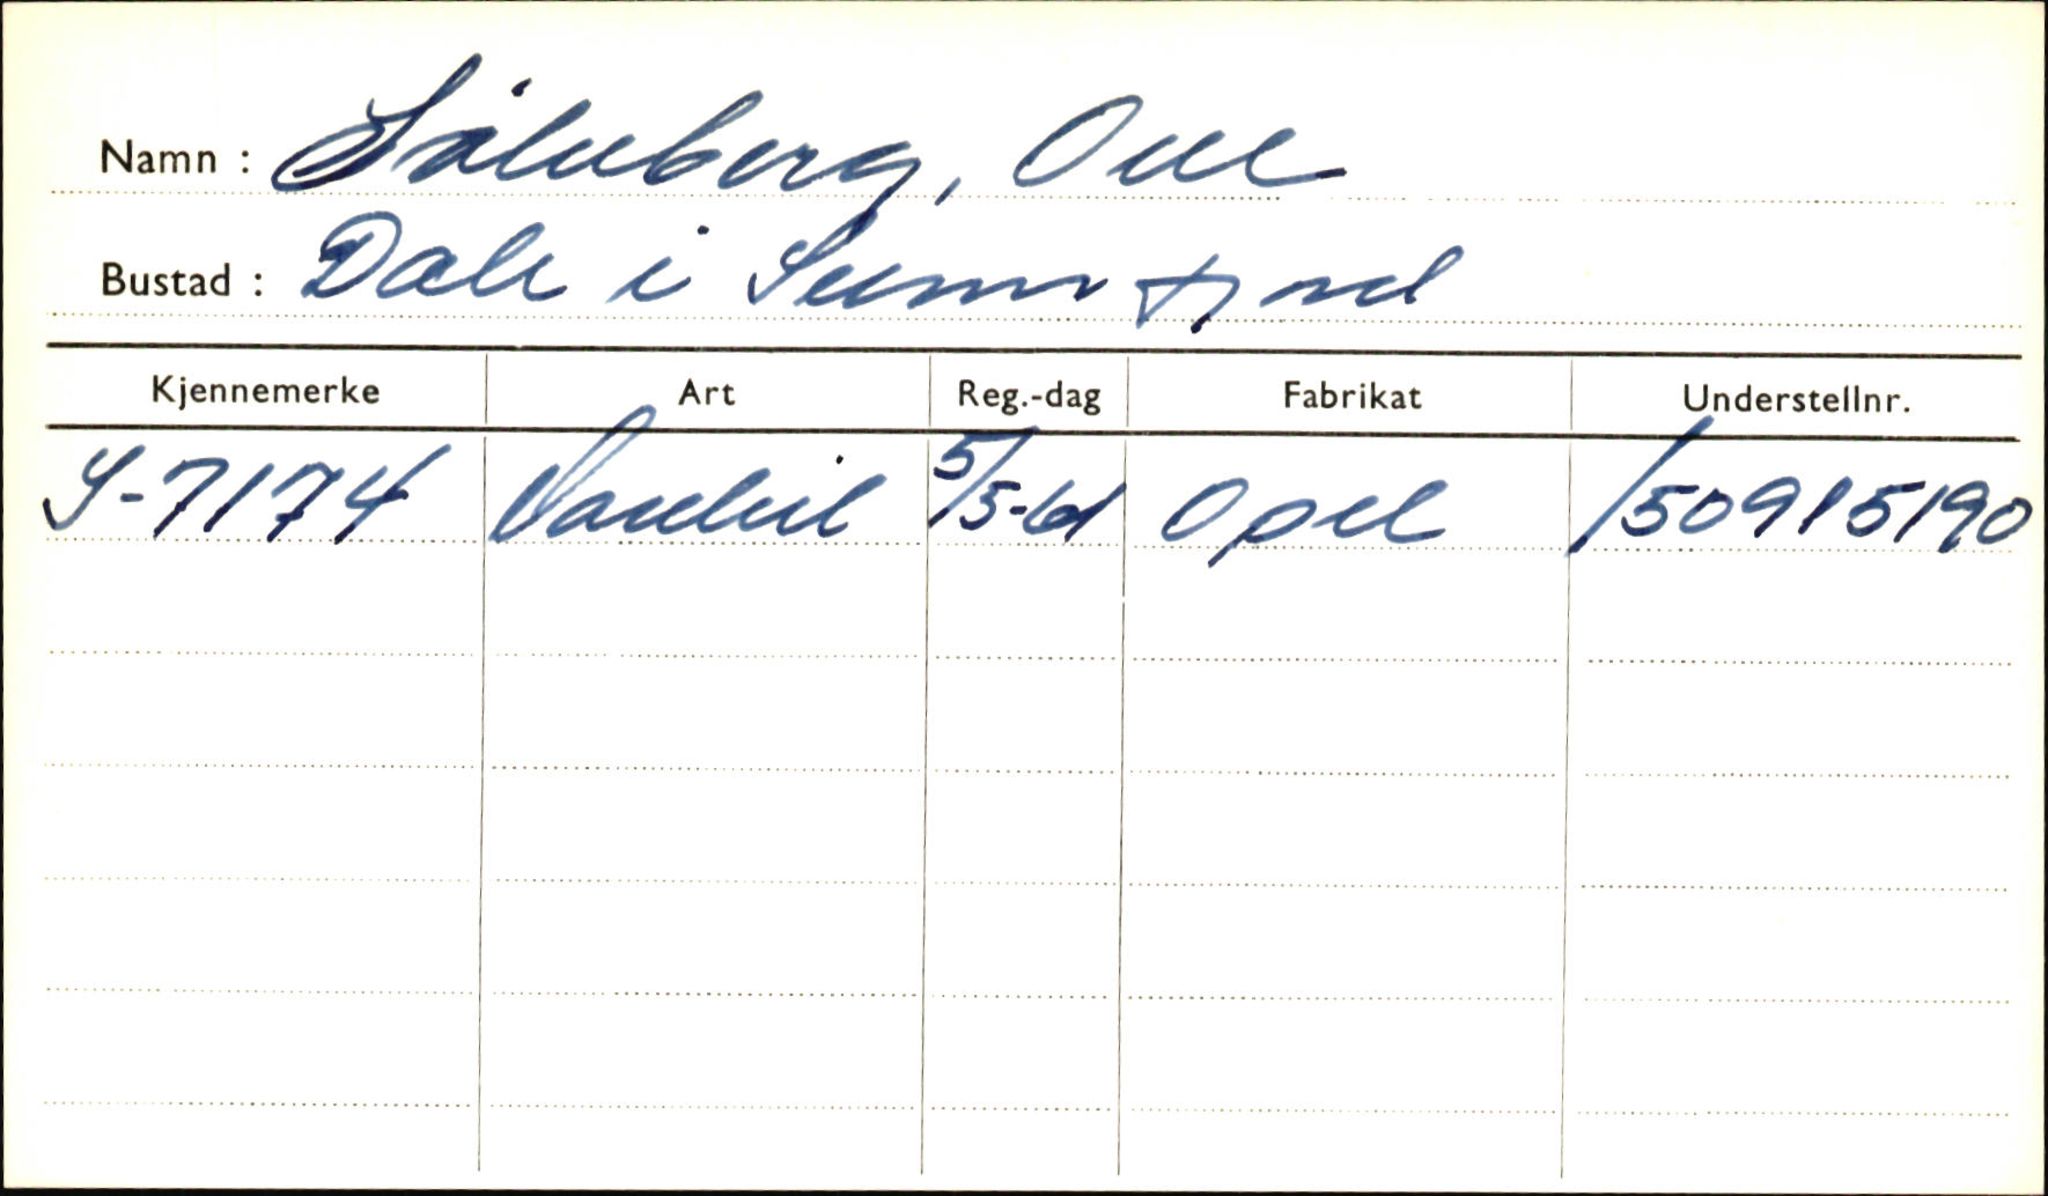 Namn : Såleberg, Odd
Bustad : Dale i Sunnfjord
Kjennemerke Art Reg.-dag Fabrikat Understellnr.
S-7174 Varebil 5/5-61 Opel /50915190